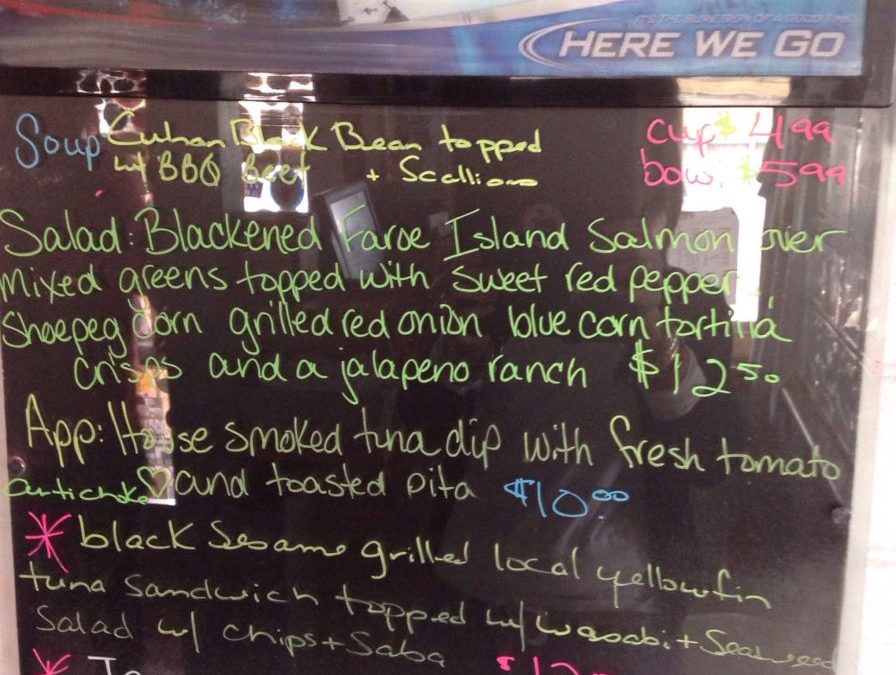 IT'S THE SURE SIGN OF A GOOD TIME
HERE WE GO
Soup Cuban Black Bean topped cup $4.99
w/ BBQ Beef + Scallions bowl $5.99
Salad: Blackened Faroe Island Salmon over
mixed greens topped with sweet red pepper,
Shoepeg corn grilled red onion blue corn tortilla
crisps and a jalapeno ranch $12.50
App: House smoked tuna dip with fresh tomato
artichoke ♡ and toasted pita $10.00
* black sesame grilled local yellowfin
tuna sandwich topped w/ wasabi + Seaweed
Salad w/ chips + Salsa